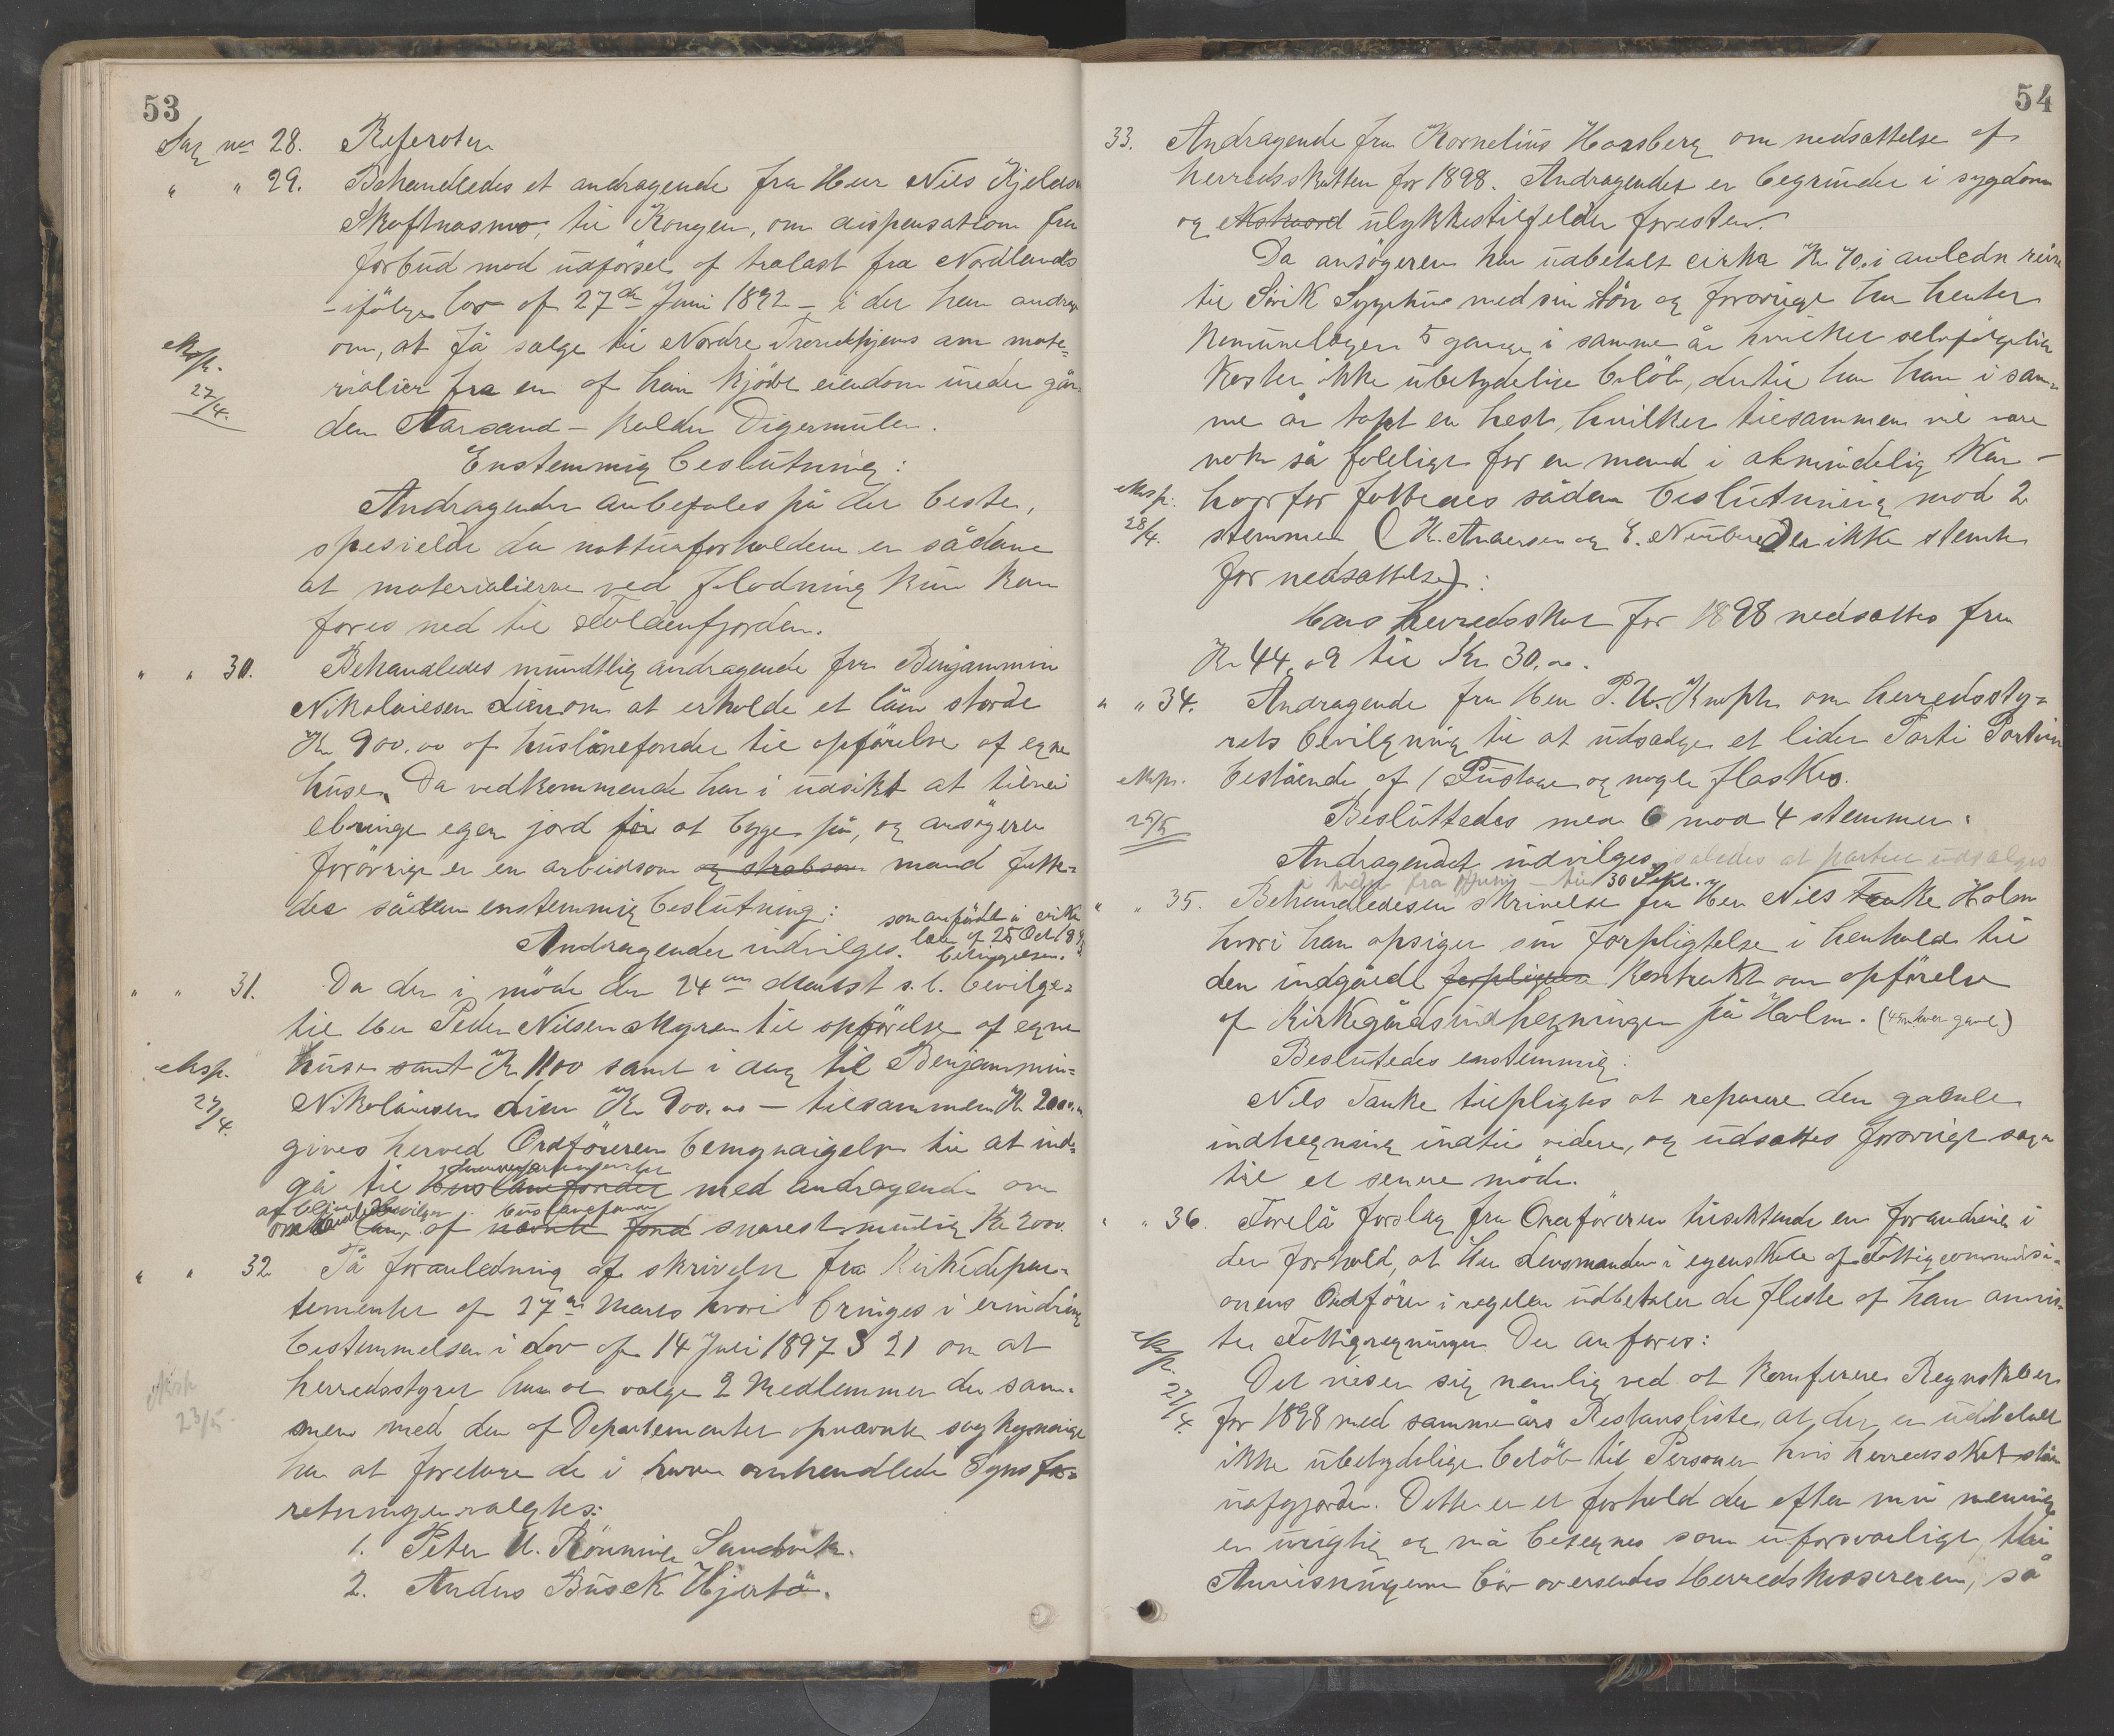 53
Sag no 28. Referater
" " 29. Behandledes et andragende fra Herr Nils Kjeldsen
Skaftnæsmo, til Kongen, om dispensation fra
forbud mod udførsel af trælast fra Nordlands
- ifølge lov af 27de Juni 1892 - i det han andrar
om, at få sælge til Nordre Trondhjems amt mate=
rialier fra en af ham kjøbt eiendom under går-
den Aarsand - kaldet Digermulen.
eksp. 27/4.
Enstemmig beslutning:
Andragendet anbefales på det beste,
spesielt da natturforholdene er sådane
at materialierne ved flødning kun kan
føres ned til Foldenfjorden.
" " 30. Behandledes mundtlig andragende fra Benjammin
Nikolaiesen Lien om at erholde et lån stort
Kr 900.00 af huslånefondet til opførelse af egne
huse. Da vedkommende har i udsikt at
egen jord før at bygge på, og ansøgeren
forøvrigt er en arbeidsom og stræbsom mand fatte-
des sådan enstemmig beslutning:
Andragendet indvilges. som anført i cirku
lære af 25 Oct 189
betingelsen.
" " 31. Da der i møde den 24de Marts s.l. bevilge=
til Herr Peder Nilsen Myran til opførelse af egne
huse samt Kr 1100 samt i dag til Benjammin=
eksp. 27/4.
Nikolaisen Lien Kr 900.00 - tilsammen Kr 2000.00
gives herved Ordføreren bemyndigelse til at ind=
gå til huslånefondet med andragende om
lån, af nævnte fond snarest mulig Kr 2000
huslånefonden
" " 32 På foranledning af skrivelse fra Kirkedepar-
tementet af 27de Marts hvori bringes i erindring
bestemmelsen i Lov af 14 Juli 1897 § 21 om at
herredsstyret har at vælge 2 Medlemmer der sam-
men med den af Departementet opnævnte sagkyndige
23/5.
har at foretage de i loven omhandlede Synsfor=
retninger valgtes:
1. Peter U. Rønning Sandvik.
2. Anders Busck Hjertø.
54
33. Andragende fra Kornelius Horsberg om nedsættelse af
herredsskatten for 1898. Andragendet er begrundet i sygdom
og ulykkestilfelder forresten.
Da ansøgeren har udbetalt cirka Kr 70. i anledn reise
til Sygehus med sin Søn og forøvrigt har hentet
Komunelægen 5 gange i samme år hvilket selvfølgelig
koster ikke ubetydelige beløb, dertil har han i sam-
me år tapt en hest, hvilket tilsammen vil være
nok så føleligt for en mand i almindelig Kår -
eksp. 28/4.
hvorfor fattedes sådan beslutning mod 2
stemmer (K. Andersen og E. der ikke stemte
for nedsættelse):
Hans herredsskat for 1898 nedsættes fra
Kr 44,09 til Kr 30.00.
" " 34. Andragende fra Herr P. U. Knoph om herredssty=
rets bevilgning til at udsælge et lidet Parti Portvin
eksp. 25/5
bestående af 1 Fustage og nogle flasker.
Besluttedes med 6 mod 4 stemmer:
Andragendet indvilges, således at partiet udsælges
i tiden fra 1 Juni - til 30 Sept.
" " 35. Behandledes en skrivelse fra Herr Nils Tanke Holm
hvori han opsiger sin forpligtelse i henhold til
den indgåede forpligtes kontrakt om opførelse
af Kirkegårdsindhegningen på Holm. (
Beslutedes enstemmig:
Nils Tanke tilpligtes at reparere den gamle
indhegning indtil videre, og udsættes forøvrigt sagen
til et senere møde.
" " 36. Forelå forslag fra Ordføreren tilsiktende en forandring i
det forhold, at Herr Lensmanden i egenskab af Fattigcommissi-
onens Ordfører i regelen udbetaler de fleste af ham anvis-
te Fattigregninger. Der anføres:
eksp. 27/4.
Det viser sig nemlig ved at konferere Regnskabet
for 1898 med samme års Restansliste, at der er udbetalt
ikke ubetydelige beløb til Personer hvis herredsskat står
uafgjorte. Dette er et forhold der efter min mening
er urigtig og må betegnes som uforsvarligt, thi
Anvisningerne bør oversendes Herredskassereren, så